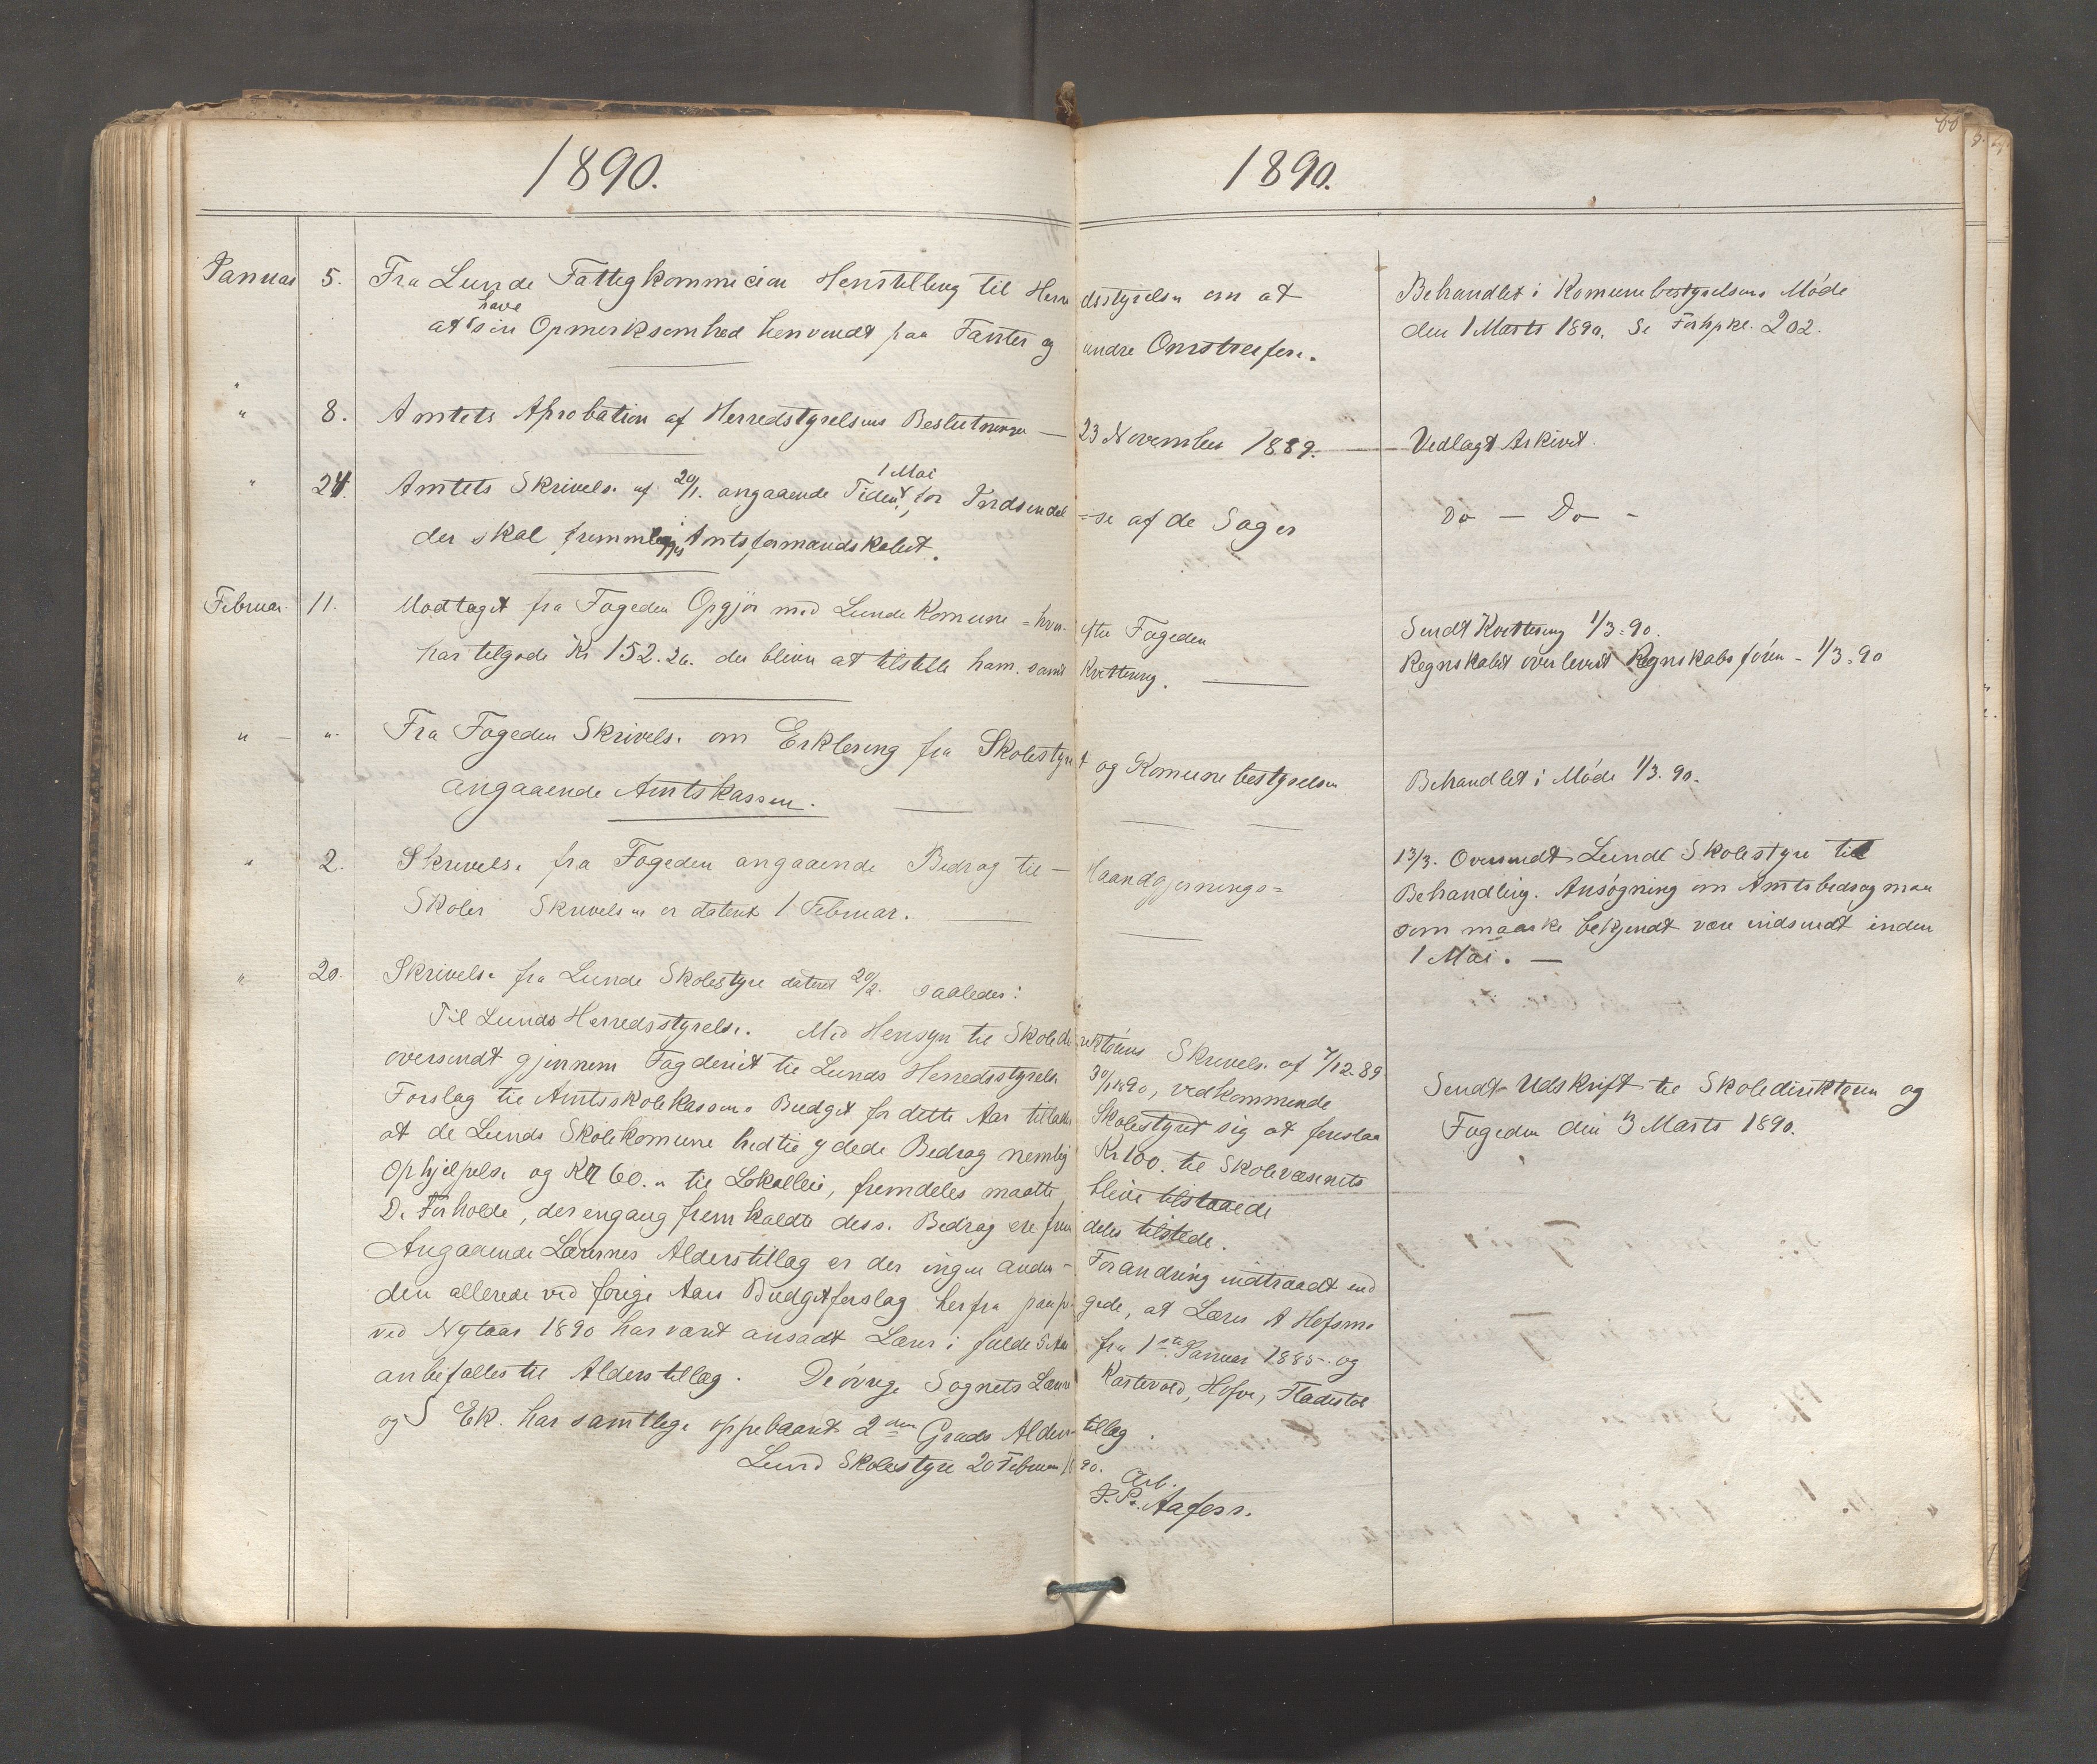 1890. 1890.
Januar 5. Fra Lunde Fattigkommicion Henstilling til Herredsstyrelsen om at Behandlet i Komunebestyrelsens Møde
at have sin Opmerksomhed henvendt paa Fanter og andre Omstreifere. den 1 Marts 1890. Se Forhpkl. 202.
" 8. Amtets Aprobation af Herredstyrelsens Beslutninger — 23 November 1889. — Vedlagt Arkivet.
" 24. Amtets Skrivelse af 20/1. angaaende Tiden 1 Mai for Indsendel=se af de Sager Do — Do -
der skal fremmlegges Amtsformandskabet.
Februar. 11. Modtaget fra Fogeden Opgjør med Lunde Komune = hvorefter Fogeden Sendt Kvittering 1/3-90.
har tilgode Kr 152.26. der bliver at tilstille ham. samt Kvittering. Regnskabet overleveret Regnskabsføren - 1/3-90
" — ". Fra Fogeden Skrivelse om Erklering fra Skolestyret og Komunebestyrelsen Behandlet i Møde 1/3.90.
angaaende Amtskassen.
" 2. Skrivelse fra Fogeden angaaende Bedrag til — Haandgjernings= 13/3. Oversendt Lunde Skolestyre til
Skoler Skrivelsen er dateret 1 Februar. Behandling. Ansøgning om Amtsbedrag maa
som maaske bekjendt være indsendt inden
1 Mai. —
" 20. Skrivelse fra Lunde Skolestyre dateret 20/2. saaledes:
Til Lunds Herredsstyrelse. Med Hensyn til Skoledirektørens Skrivelse af 7/12-89.
oversendt gjennem Fogderiet til Lunds Herredsstyrelse 30/1 1890, vedkommende Sendt Udskrift til Skoledirektøren og
Forslag til Amtsskolekassens Budget for dette Aar tillader Skolestyret sig at foreslaa Fogeden den 3 Marts 1890.
at de Lunds Skolekomune hidtil ydede Bedrag nemlig Kr 100. til Skolevæsenets
Ophjelpelse og Kr 60. " til Lokalleie, fremdeles maatte, blive tilstaaede
De Forholde, der engang fremkaldte disse Bedrag ere fremdeles tilstede.
Angaaende Lærernes Alderstillæg er der ingen anden - Forandring indtraadt end
den allerede ved forige Aars Budgetforslag herfra paapegede, at Lærer A Hofsmo
ved Nytaar 1890 har været ansadt Lærer i fulde 5 Aar fra 1ste Januar 1885. og
anbefalles til Alderstillæg. De øvrige Sognets Lærere Kartevold, Hofve, Fladestøl
og S Ek. har samtlige oppebaaret 2den Grads Alderstillæg.
Lund Skolestyre 20 Februar 1890.
Ærb.
P. P. Aafess.